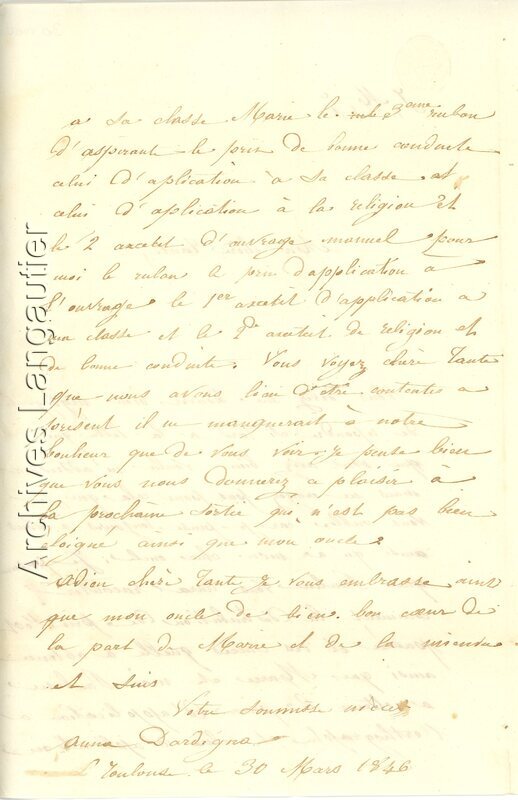 a sa classe Marie le 3eme rubon
d'aspirante le prix de bonne conduite
celui d'aplication à sa classe et
celui d'aplication à la religion et
le 2 accetit d'ouvrage manuel pour
moi le rubon le prix d'application a
l'ouvrage le 1er accetit d'application a
ma classe et le 2d accetit de religion et
de bonne conduite. Vous voyez chère Tante
que nous avons lieu d'être contentes a
présent il ne manquerait à notre
bonheur que de vous voir je pense bien
que vous nous donnerez ce plaisir à
la prochaine sortie qui n'est pas bien
eloigné ainsi que mon oncle.
Adieu chère Tante je vous embrasse ainsi
que mon oncle de bien bon cœur de
la part de Marie et de la mienne
et suis
Votre soumisse nièce
Anna Dardigna
Toulouse le 30 Mars 1846
Archives Langautier